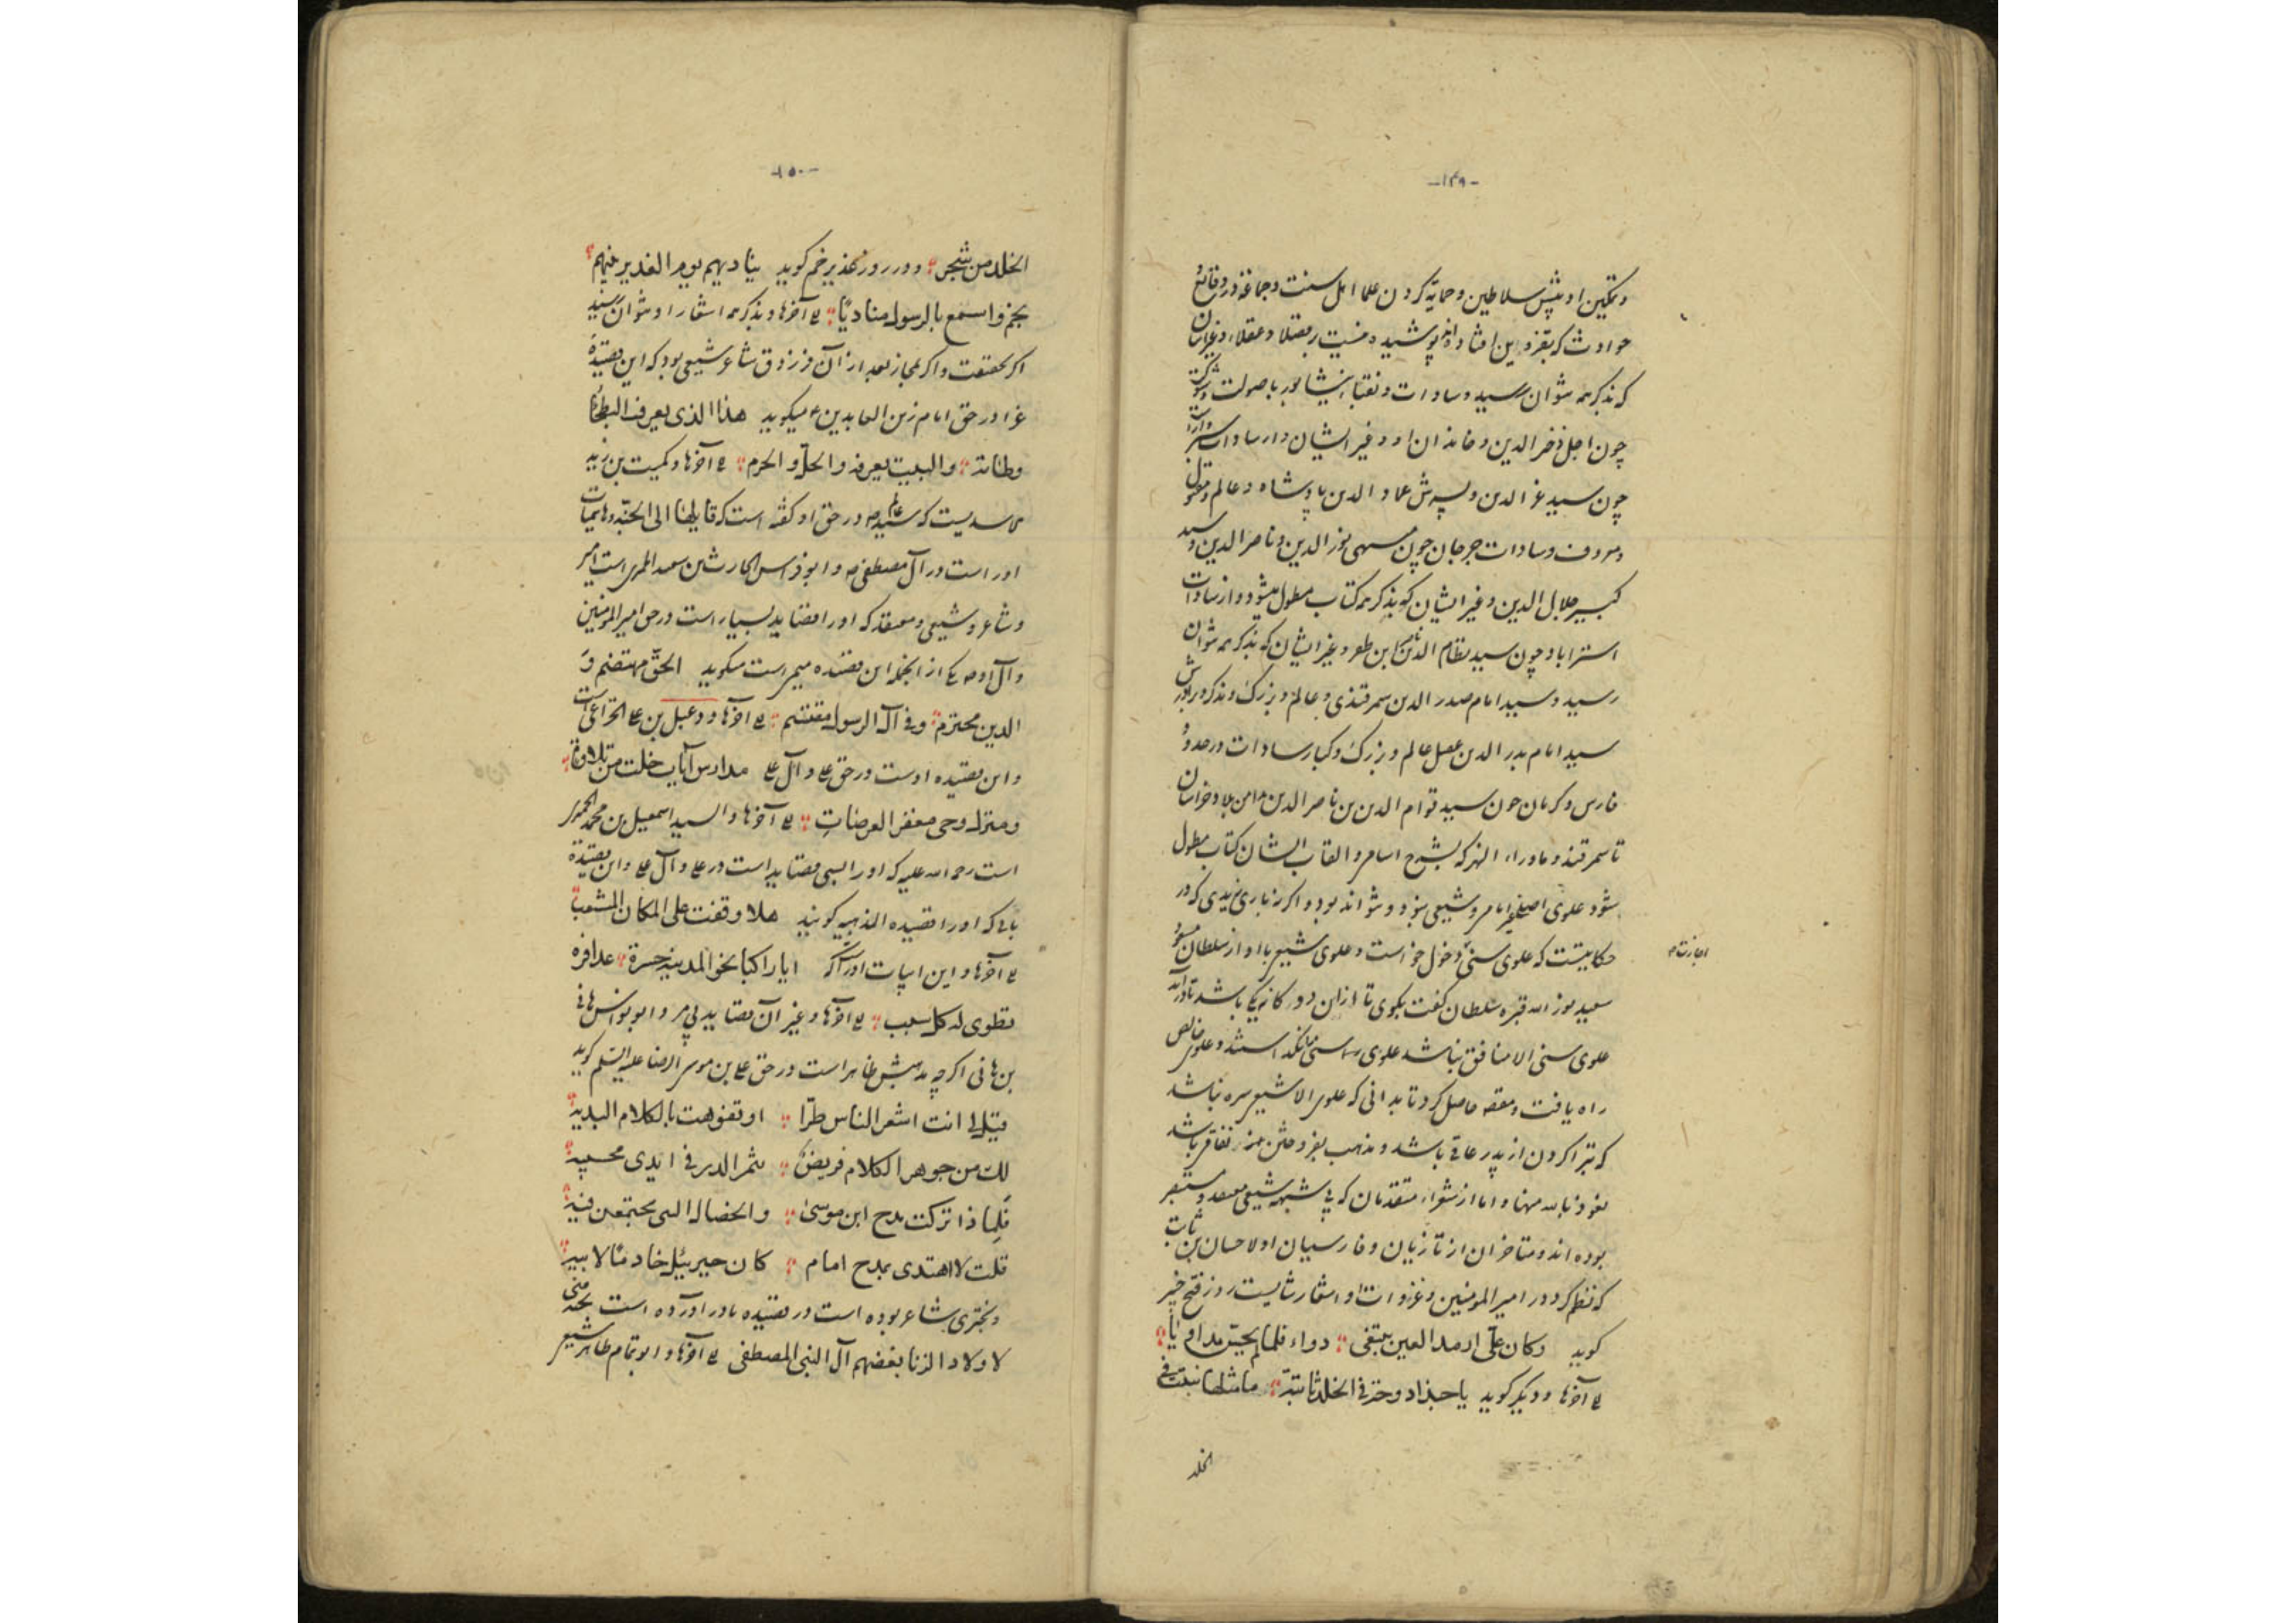 -۱۴۹-
و تمکین او پیش سلاطین و حمایة کردن علما اهل سنت و جماعة در وقایع
حوادث که بقزوین افتاد پوشیده نیست بر فضلا و عقلاء و غیر ایشان
که بذکر همه نتوان رسید و سادات و نقباء نیشابور با صولت و شوکت
چون اجل فخر الدین و خاندان او و غیر ایشان و از سادات
چون سید عز الدین و پسرش عماد الدین پادشاه و عالم و مقبول
و معروف و سادات جرجان چون نور الدین و ناصر الدین و سید
کبیر جلال الدین و غیر ایشان که بذکر همه کتاب مطول میشود و از سادات
استراباد چون سید نظام الدین و غیر ایشان که بذکر همه نتوان
رسید و سید امام صدر الدین سمرقندی و عالم و بزرگ و مذکر و برادرش
سید امام بدر الدین عالم و بزرگ و کبار سادات در حدود
فارس و کرمان چون سید قوام الدین بن ناصر الدین و خراسان
تا سمرقند و ماوراء النهر که بشرح اسامی و القاب ایشان کتاب مطول
شود علوی اصلی غیر امامی و شیعی نبود و نتواند بود و اگر نه باری زیدی که در
حکایتست که علوی سنی دخول خواست و علوی شیعی با او از سلطان مسعود
اجازت م
سعید نور الله قبره سلطان گفت بگوی تا ازان دوگانه یکی باشد تا در آید
علوی سنی الا منافق نباشد علوی و علوی خالص
راه یافت و مقصد حاصل کرد تا بدانی که علوی الا شیعی سره نباشد
که تبرا کردن از پدر عاقی باشد و مذهب بفروختن باشد
نعوذ بالله منها و اما از شعراء متقدمان که بی شبهه شیعی معتقد و مستبصر
بوده اند و متاخران از تازیان و فارسیان اولا حسان بن ثابت
که نظم کرد در امیر المومنین و غزوات او و اشعارش روز فتح خیبر
گوید وکان علی ارمد العین یبتغی دواء فلما لم یحس مداویا
لی آخرها و دیگر گوید یا حبذا دوحة فی الخلد ثابتة ما مثلها نبتت فی
الخلد
-۱۵۰-
الخلد من شجر و در روز غدیر خم گوید ینادیهم یوم الغدیر نبیهم
بخم واسمع بالرسول منادیا لی آخرها و بذکر همه اشعار او نتوان رسید
اگر بحقیقت و اگر بمجاز بعد از آن فرزدق شاعر شیعی بود که این قصیدة
غرا در حق امام زین العابدین ع میگوید هذا الذی یعرف البطحاء
وطاته والبیت یعرفه والحل والحرم لی آخرها و کمیت بن زید
الاسدیست که سید عالم ص در حق او گفته است که قایلها الی الجنة و هاشمیات
او راست در آل مصطفی ص و ابو فراس الحارث بن سعید است امیر
و شاعر و شیعی و معتقد که او را قصاید بسیار است در حق امیر المومنین
و آل او ص یکی از انجمله این قصیده میمیراست میگوید الحق مهتضم و
الدین محترم وفی آل الرسول مقتسم لی آخرها و دعبل بن علی الخزاعی است
و این قصیده اوست در حق علی و آل علی مدارس آیات خلت من تلاوة
ومنزل وحی مقفر العرصات لی آخرها و السید اسمعیل بن محمد الحمیری
است رحمة الله علیه که او را بسی قصاید است در علی و آل علی و این قصیدة
بائی که او را قصیده المذهبیه گویند هلا وقفت علی المکان المعشب
لی آخرها و این ابیات او راست که ایا راکبا نحو المدینه جسرة عذافرة
تطوی له کل سبسب لی آخرها و غیر آن قصاید بی مر و ابو نواس هانی
بن هانی اگر چه مذهبش ظاهر است در حق علی بن موسی الرضا علیه السلم گوید
قیل لی انت اشعر الناس طرا او تفوهت بالکلام البدیه
لک من جوهر الکلام قریض یثمر الدر فی ایدی مجتنیه
فلماذا ترکت مدح ابن موسی والخصال التی یجتمعن فیه
قلت لا اهتدی بمدح امام کان جبرئیل خادما لابیه
و بحتری شاعر بوده است در قصیده مادر آورده است
لاولاد الزنا بغضهم آل النبی المصطفی لی آخرها و ابو تمام طائی شیعی